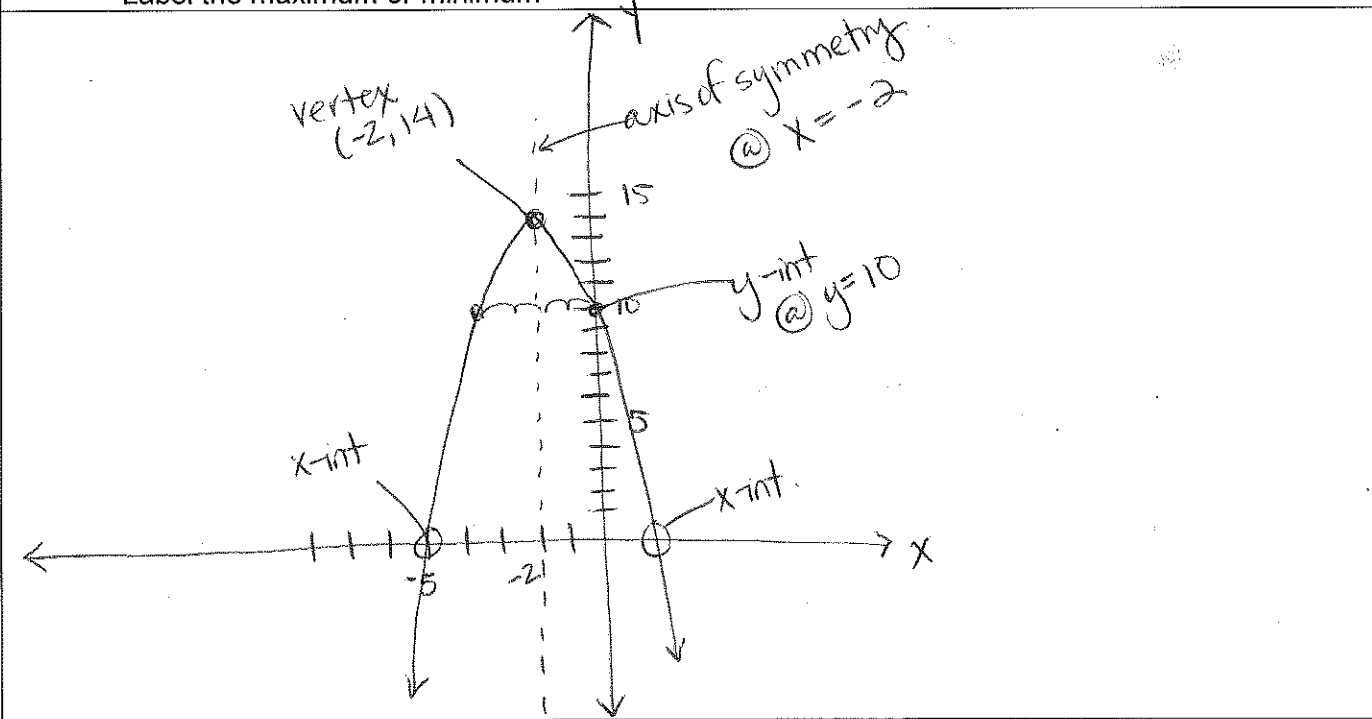 Label the maximum or minimum
Y
vertex
(-2, 14)
axis of symmetry
@ x = -2
15
y-int
@ y=10
10
5
x-int
x-int.
-5
-2
X